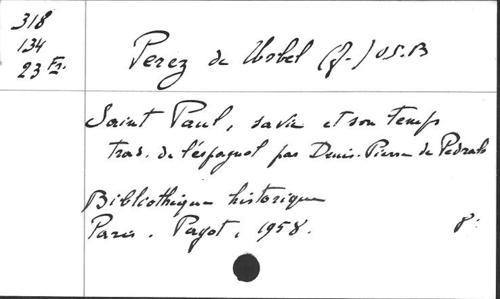 318
134
23 Fr.
Perez de Urbel (J.) O.S.B
Saint Paul, sa vie et son temps
trad. de l'espagnol par Denis-Pierre de Pedrals
Bibliothèque historique
Paris. Payot, 1958. 8º